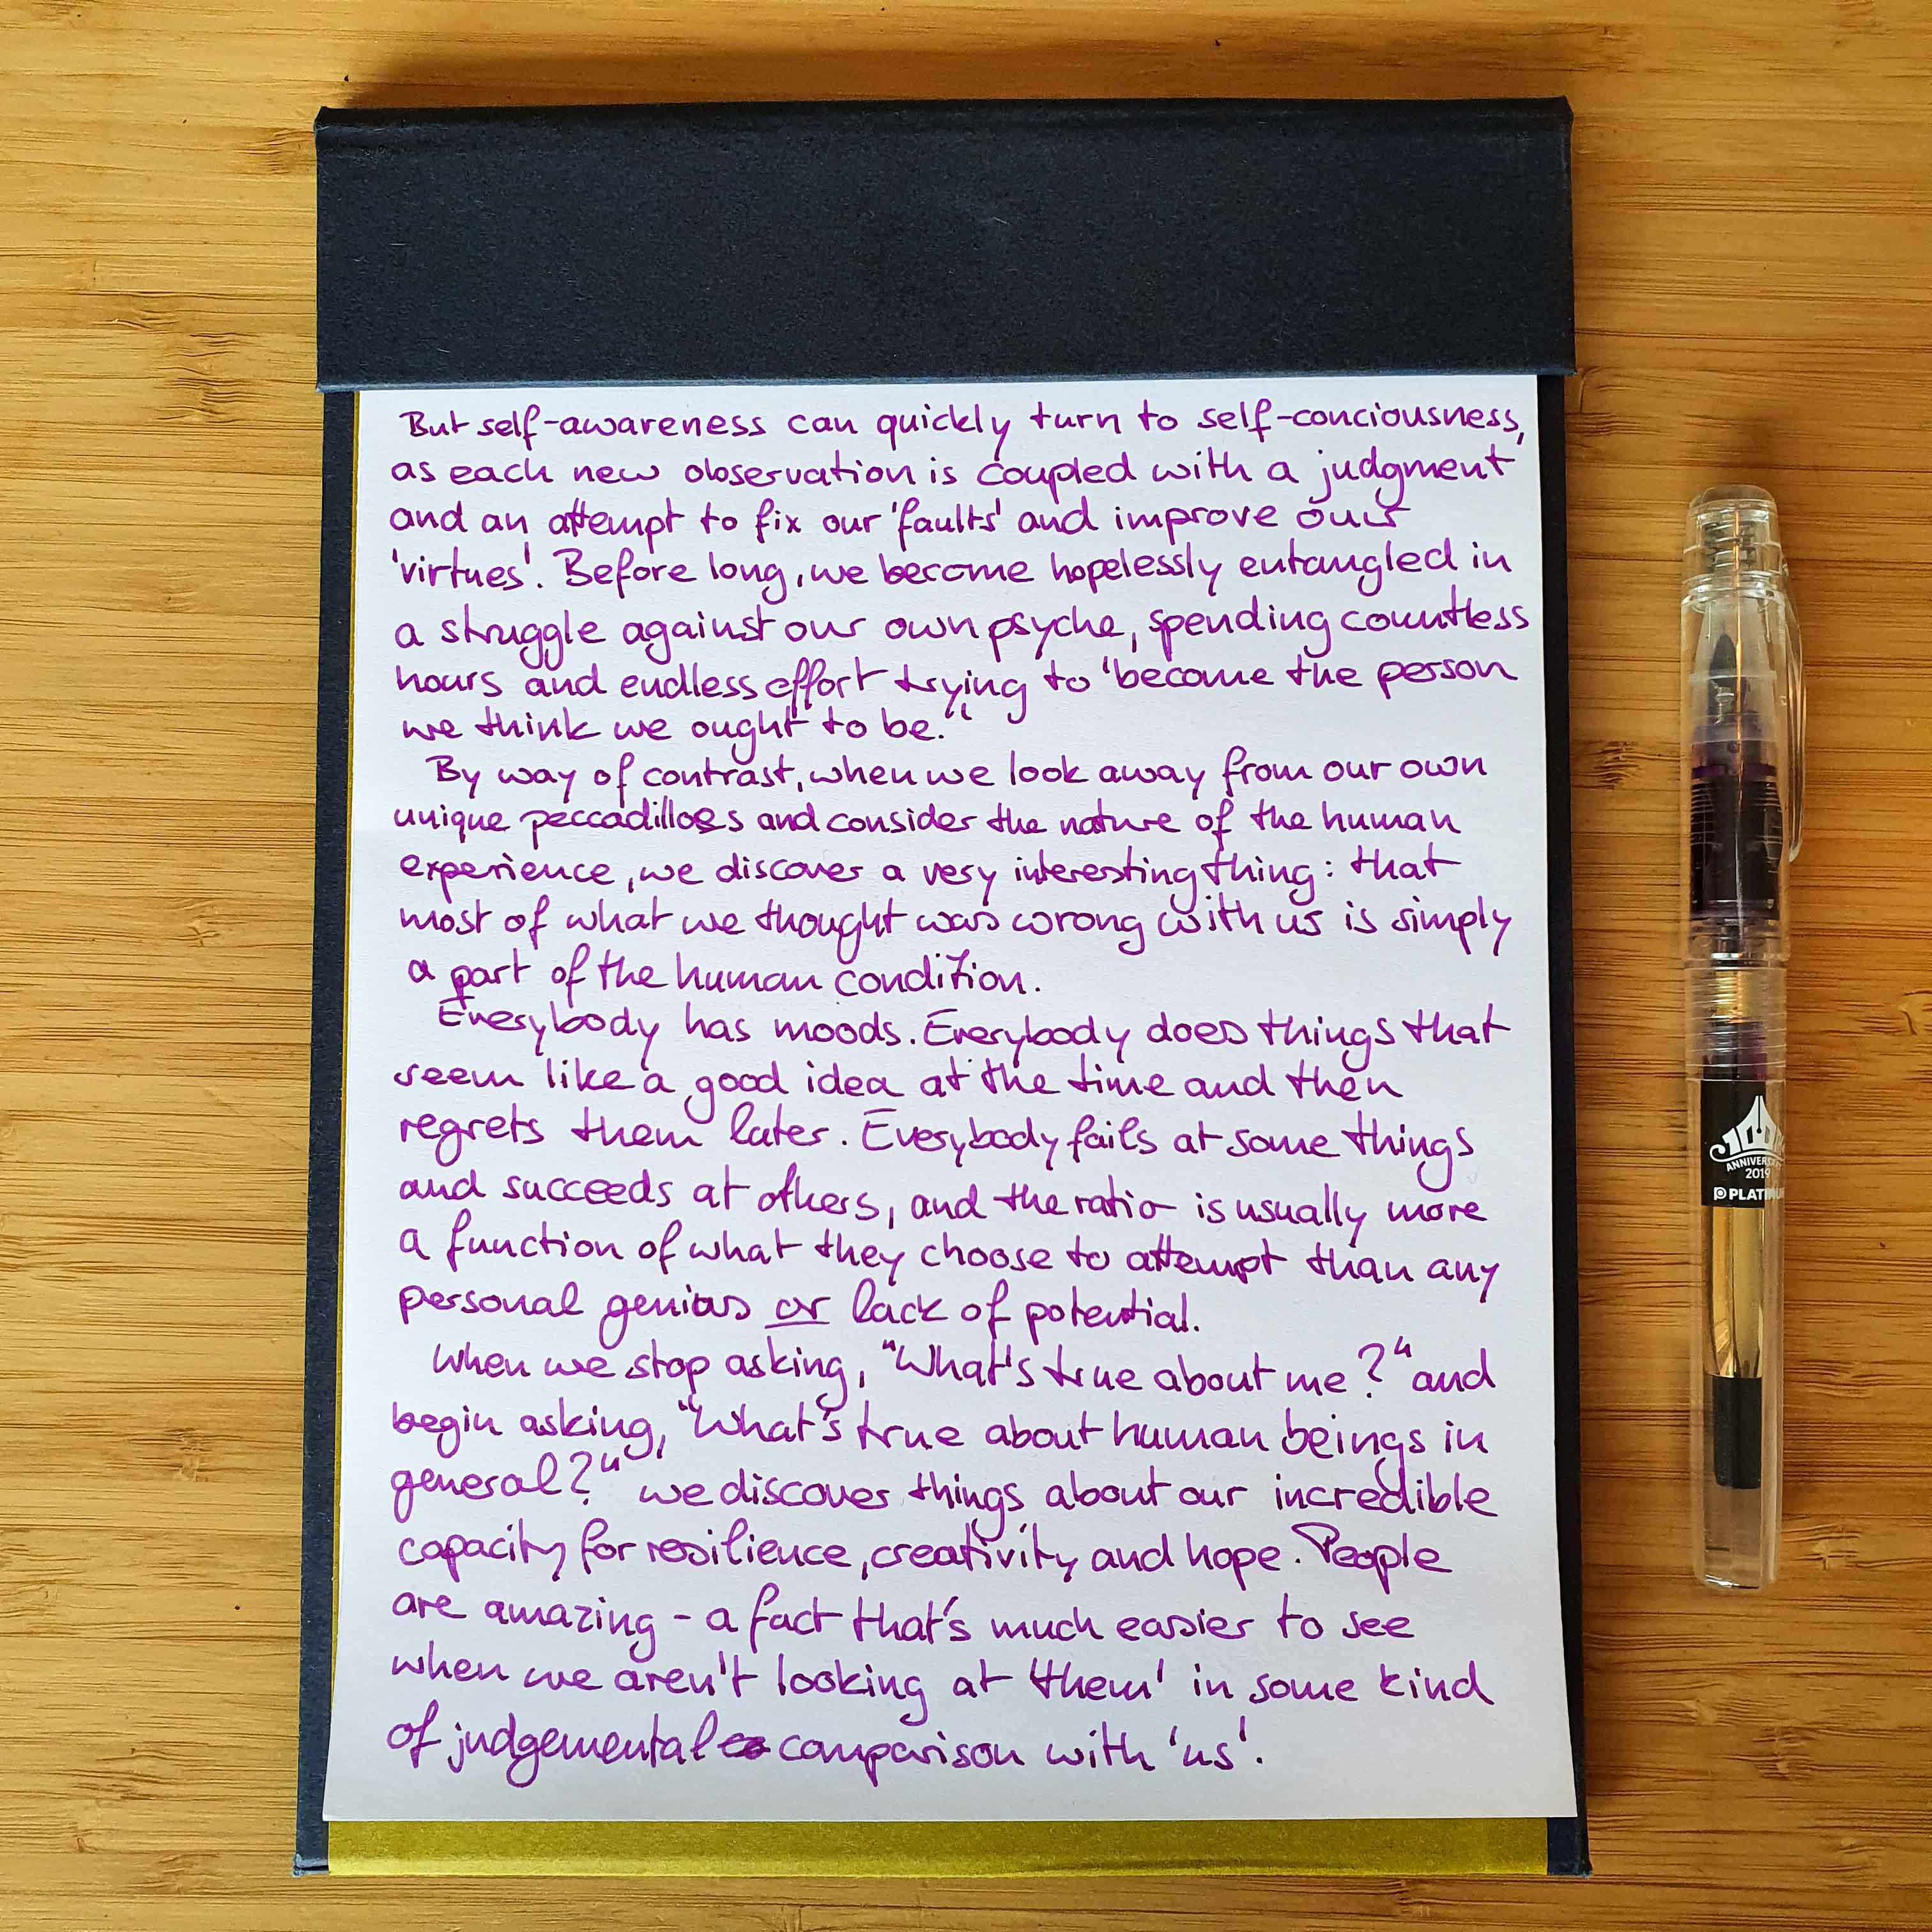 But self-awareness can quickly turn to self-conciousness,
as each new observation is coupled with a judgment
and an attempt to fix our 'faults' and improve our
'virtues'. Before long, we become hopelessly entangled in
a struggle against our own psyche, spending countless
hours and endless effort trying to 'become the person
we think we ought to be."
By way of contrast, when we look away from our own
unique peccadilloes and consider the nature of the human
experience, we discover a very interesting thing: that
most of what we thought was wrong with us is simply
a part of the human condition.
Everybody has moods. Everybody does things that
seem like a good idea at the time and then
regrets them later. Everybody fails at some things
and succeeds at others, and the ratio is usually more
a function of what they choose to attempt than any
personal genius or lack of potential.
When we stop asking, "What's true about me?" and
begin asking, "What's true about human beings in
general?" we discover things about our incredible
capacity for resilience, creativity and hope. People
are amazing - a fact that's much easier to see
when we aren't looking at 'them' in some kind
of judgemental comparison with 'us'.
2019